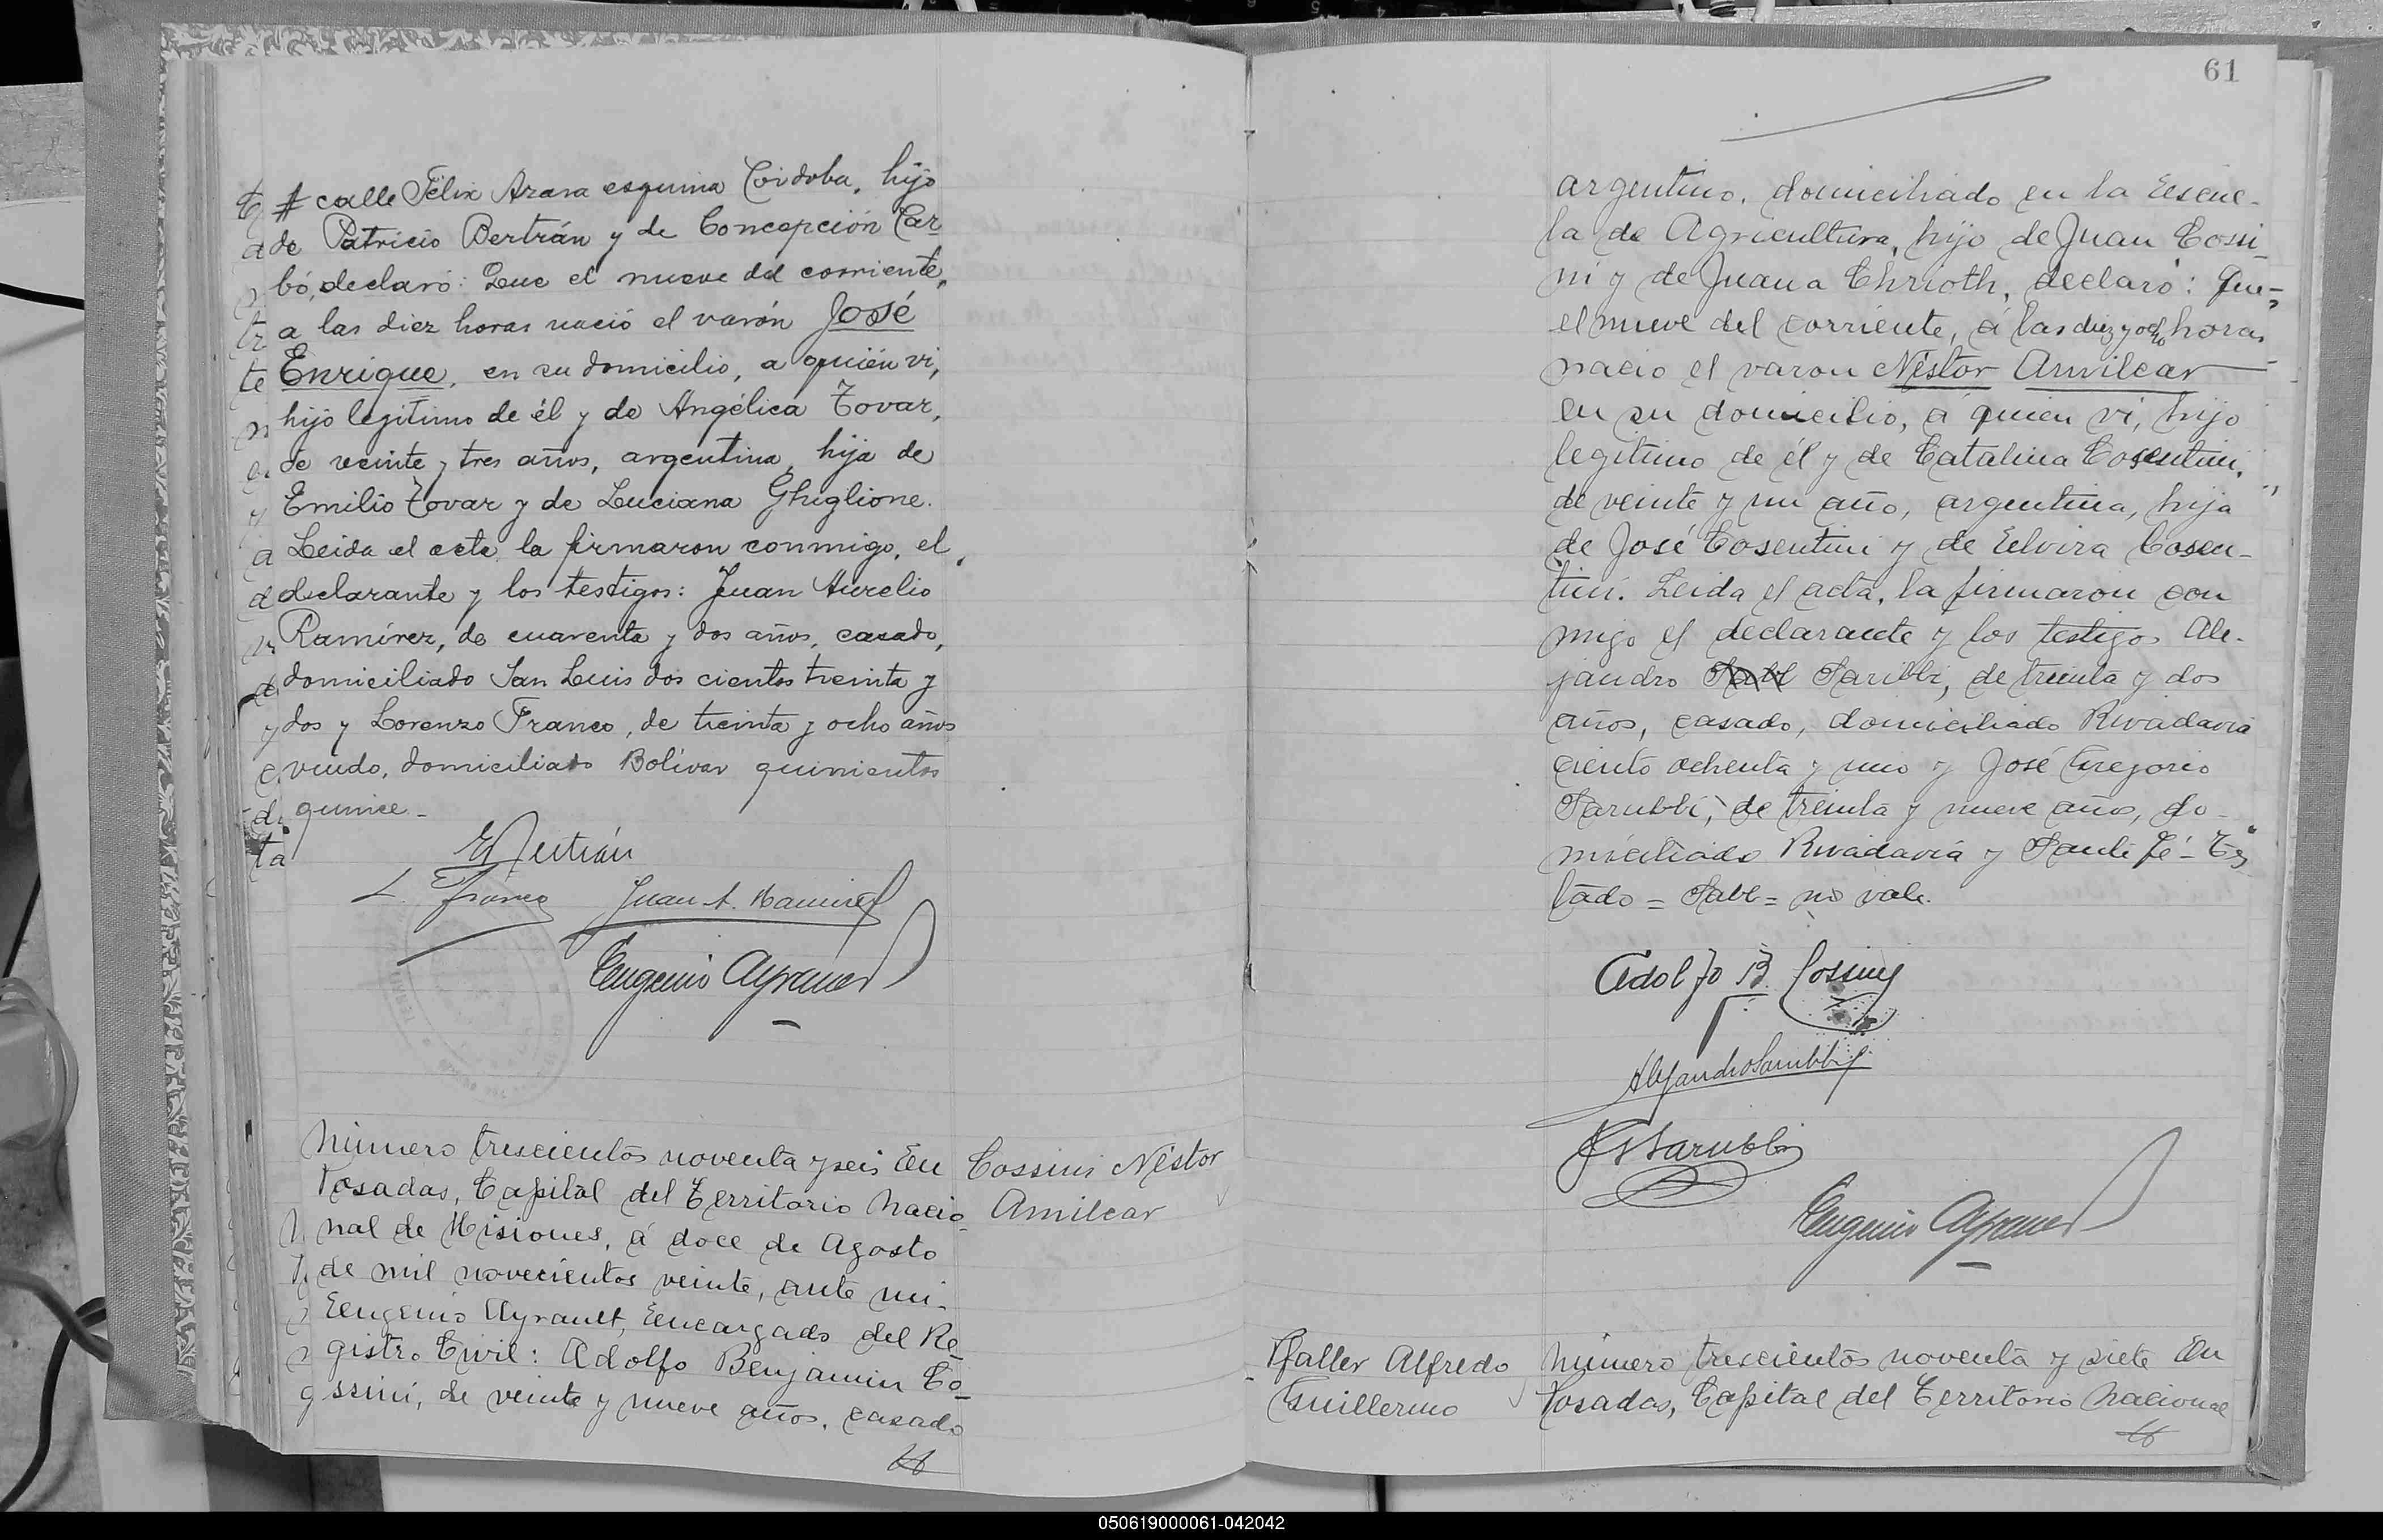 calle Félix Azara esquina Córdoba, hijo
de Patricio Bertrán y de Concepción Car
bó, declaró: Que el nueve del corriente,
a las diez horas nació el varón José
Enrique, en su domicilio, a quién vi,
hijo legítimo de él y de Angélica Tovar,
de veinte y tres años, argentina, hija de
Emilio Tovar y de Luciana Ghiglione.
Leida el acta, la firmaron conmigo, el
declarante y los testigos: Juan Aurelio
Ramírez, de cuarenta y dos años, casado,
domiciliado San Luis dos cientos treinta y
dos y Lorenzo Franco, de treinta y ocho años
viudo, domiciliado Bolívar quinientos
quince.-
EBertrán
L. Franco Juan A. Ramirez
Eugenio Ayrault
Número trescientos noventa y seis En
Posadas, Capital del Territorio Nacio
nal de Misiones, á doce de Agosto
de mil novecientos veinte, ante mi.
Eugenio Ayrault, Encargado del Re
gistro Civil: Adolfo Benjamin Co
ssini, de veinte y nueve años, casado
Cossini Néstor
Amilcar
61
argentino, domiciliado en la Escue-
la de Agricultura, hijo de Juan Cossi
ni y de Juana Chrioth, declaró: Que-
el nueve del corriente, á las diez y ocho horas
nacio el varon Néstor Amilcar
en su domicilio, á quien vi, hijo
legitimo de él y de Catalina Cosentini,
de veinte y un año, argentina, hija
de José Cosentini y de Elvira Cosen-
tini. Leida el acta, la firmaron con
migo el declarante y los testigos Ale-
jandro Sabl Saribbi, de treinta y dos
años, casado, domiciliado Rivadavia
ciento ochenta y uno y José Gregorio
Sarubbi, de treinta y nueve años, do-
miciliado Rivadavia y Santa Fé - Tes
tado = Sabl = no vale.
Adolfo B. Cossini
Alejandro Sarubbi
JGSarubbi
Eugenio Ayrault
Pfaller Alfredo
Guillermo
Número trescientos noventa y siete En
Posadas, Capital del Territorio Nacional
050619000061-042042